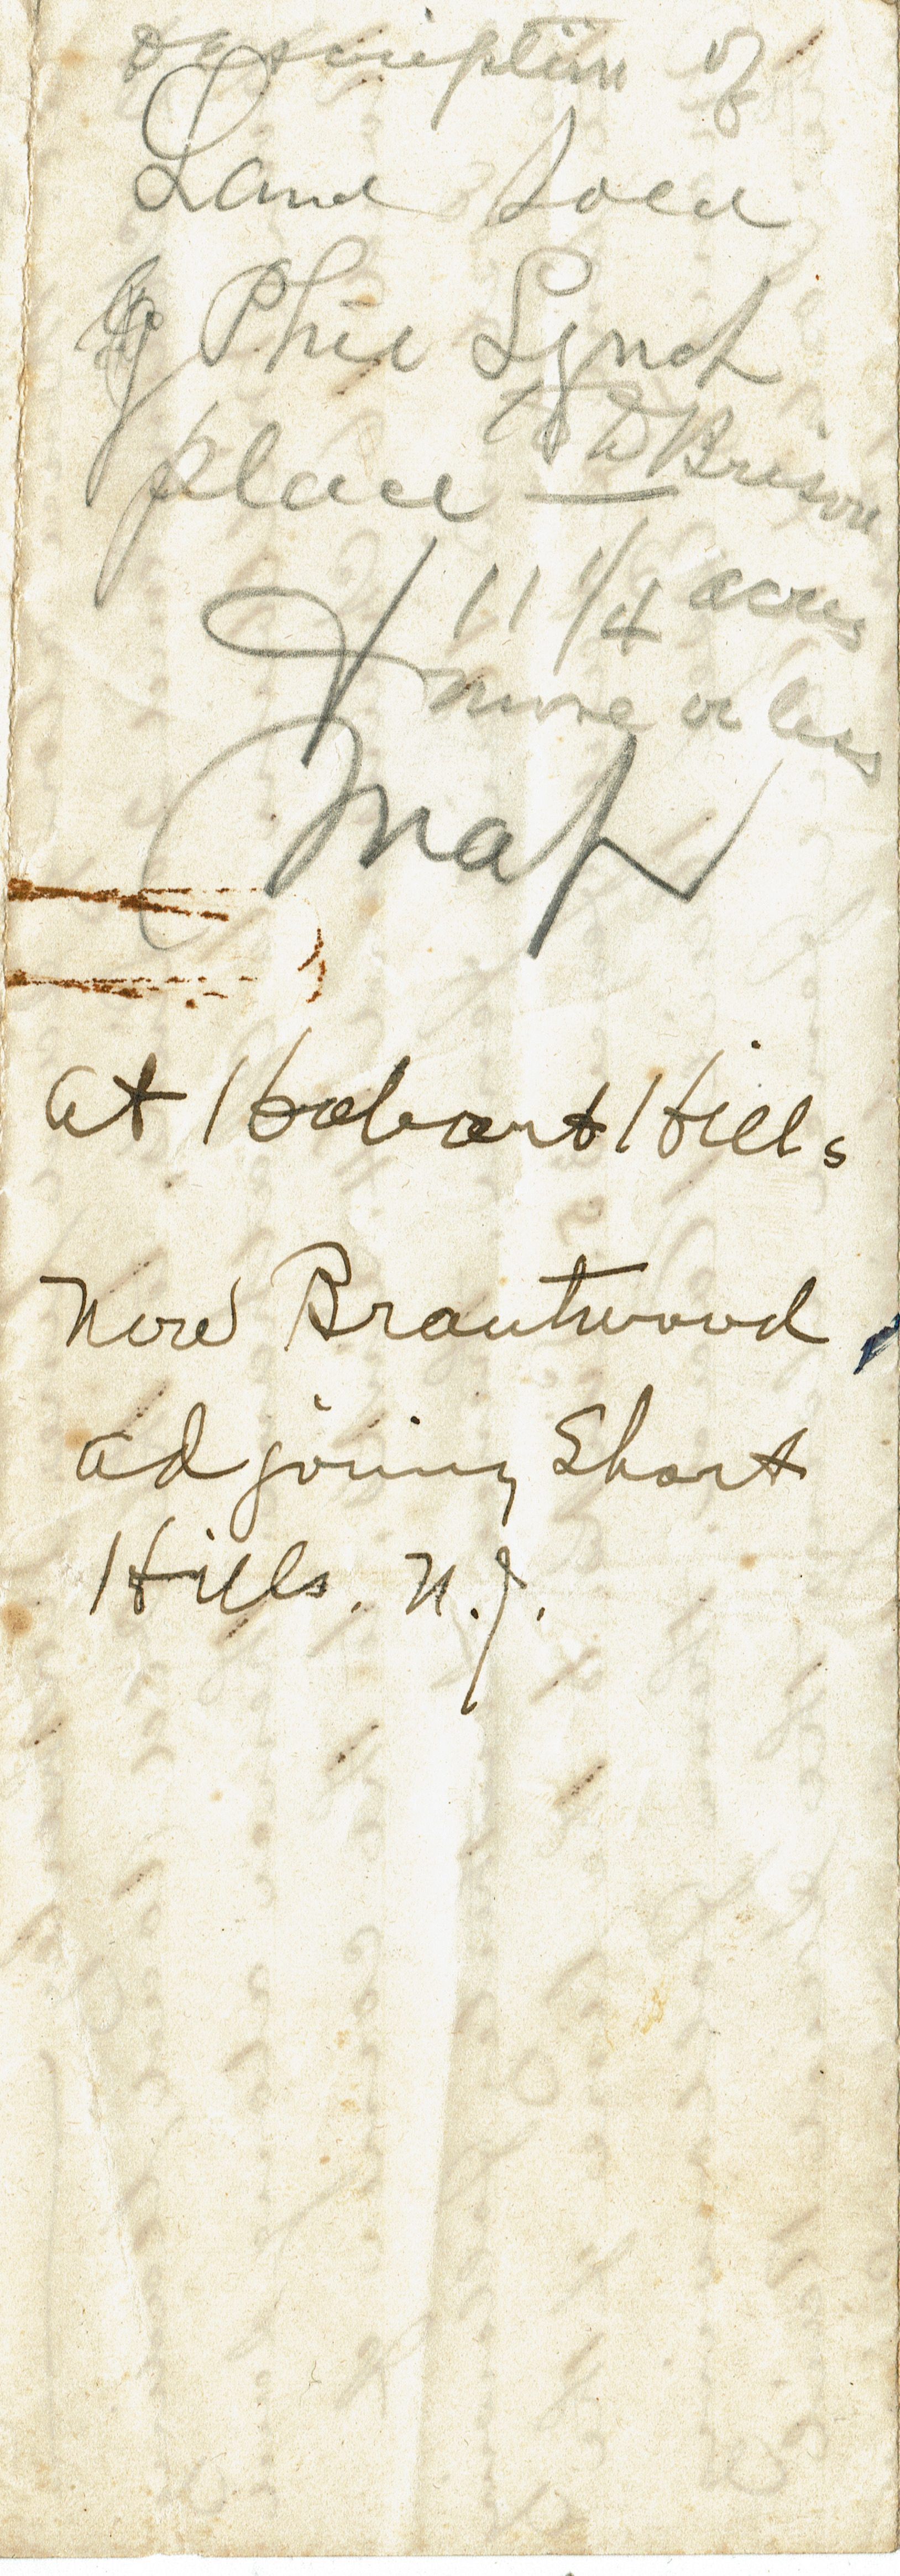 Description of
Land Sold
of Phil Lynch
place —
to D Brison
11 1/4 acres
more or less
Map
at Hobart Hills
now Brantwood
adjoining Short
Hills. N.J.